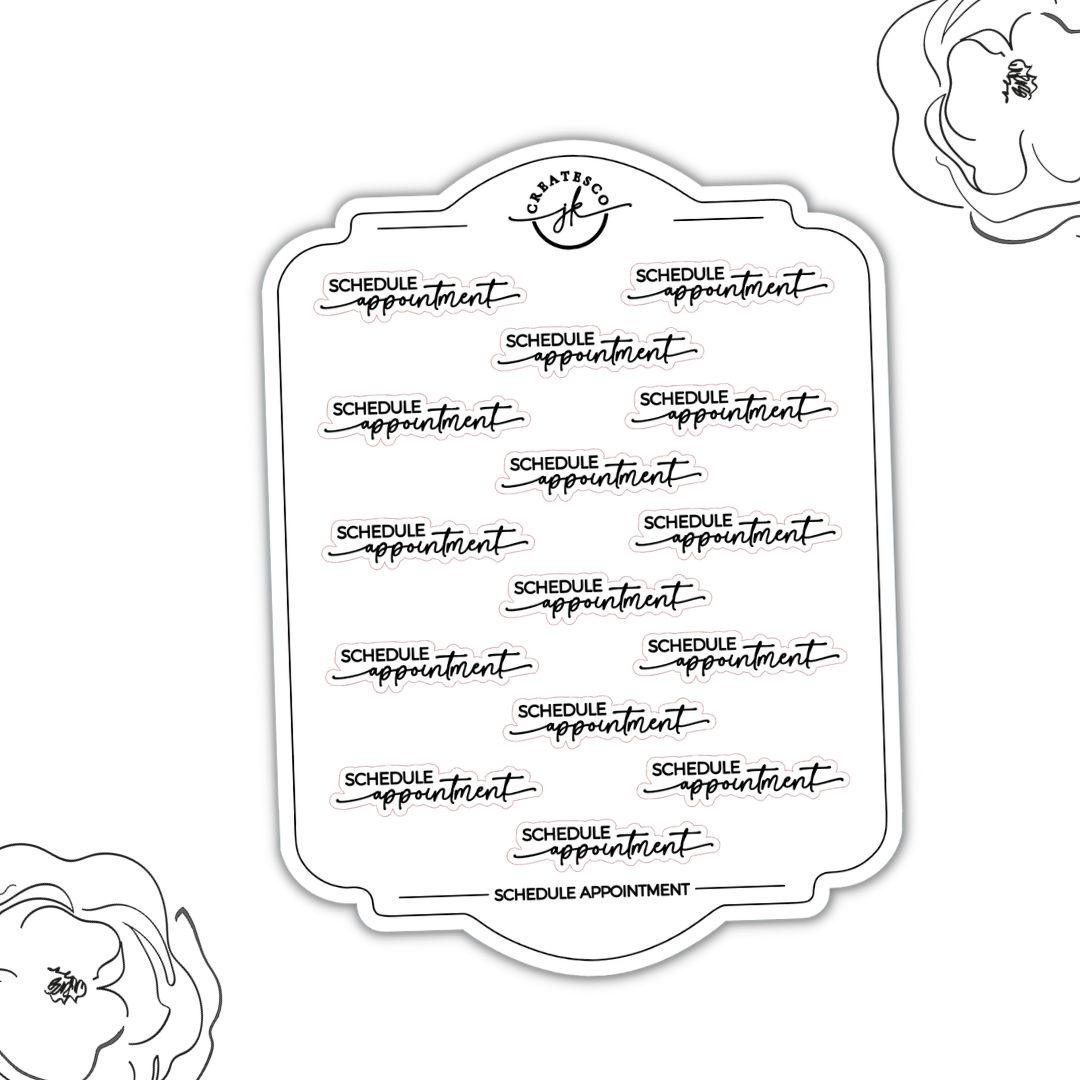 CREATESCO
jk
SCHEDULE
appointment
SCHEDULE
appointment
SCHEDULE
appointment
SCHEDULE
appointment
SCHEDULE
appointment
SCHEDULE
appointment
SCHEDULE
appointment
SCHEDULE
appointment
SCHEDULE
appointment
SCHEDULE
appointment
SCHEDULE
appointment
SCHEDULE
appointment
SCHEDULE
appointment
SCHEDULE
appointment
SCHEDULE
appointment
SCHEDULE APPOINTMENT